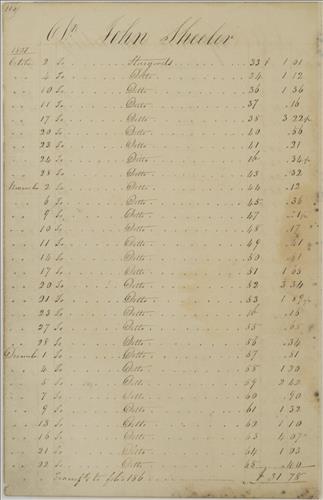 John Sheeler
October 2 To Sturgeoils 33 1 01
4 To Ditto 34 1 12
10 To Ditto 36 1 36
11 To Ditto 37 .16
17 To Ditto 38 3 22
20 To Ditto 40 .56
23 To Ditto 41 .21
24 To Ditto 16 .34
28 To Ditto 43 .32
November 2 To Ditto 44 .12
6 To Ditto 45 .36
9 To Ditto 47
10 To Ditto 48 .17
11 To Ditto 49 .41
14 To Ditto 50 .41
17 To Ditto 51 1
20 To Ditto 52 3 34
21 To Ditto 53 1 89
23 To Ditto 16 .16
27 To Ditto 55 .65
28 To Ditto 56 .34
December 1 To Ditto 57 .51
4 To Ditto 58 1 20
5 To Ditto 59 2 42
7 To Ditto 60 .90
9 To Ditto 61 1 32
13 To Ditto 62 1 10
16 To Ditto 63 4
21 To Ditto 64 1 23
22 To Ditto 65 .40
to folio 156 $ 31 78